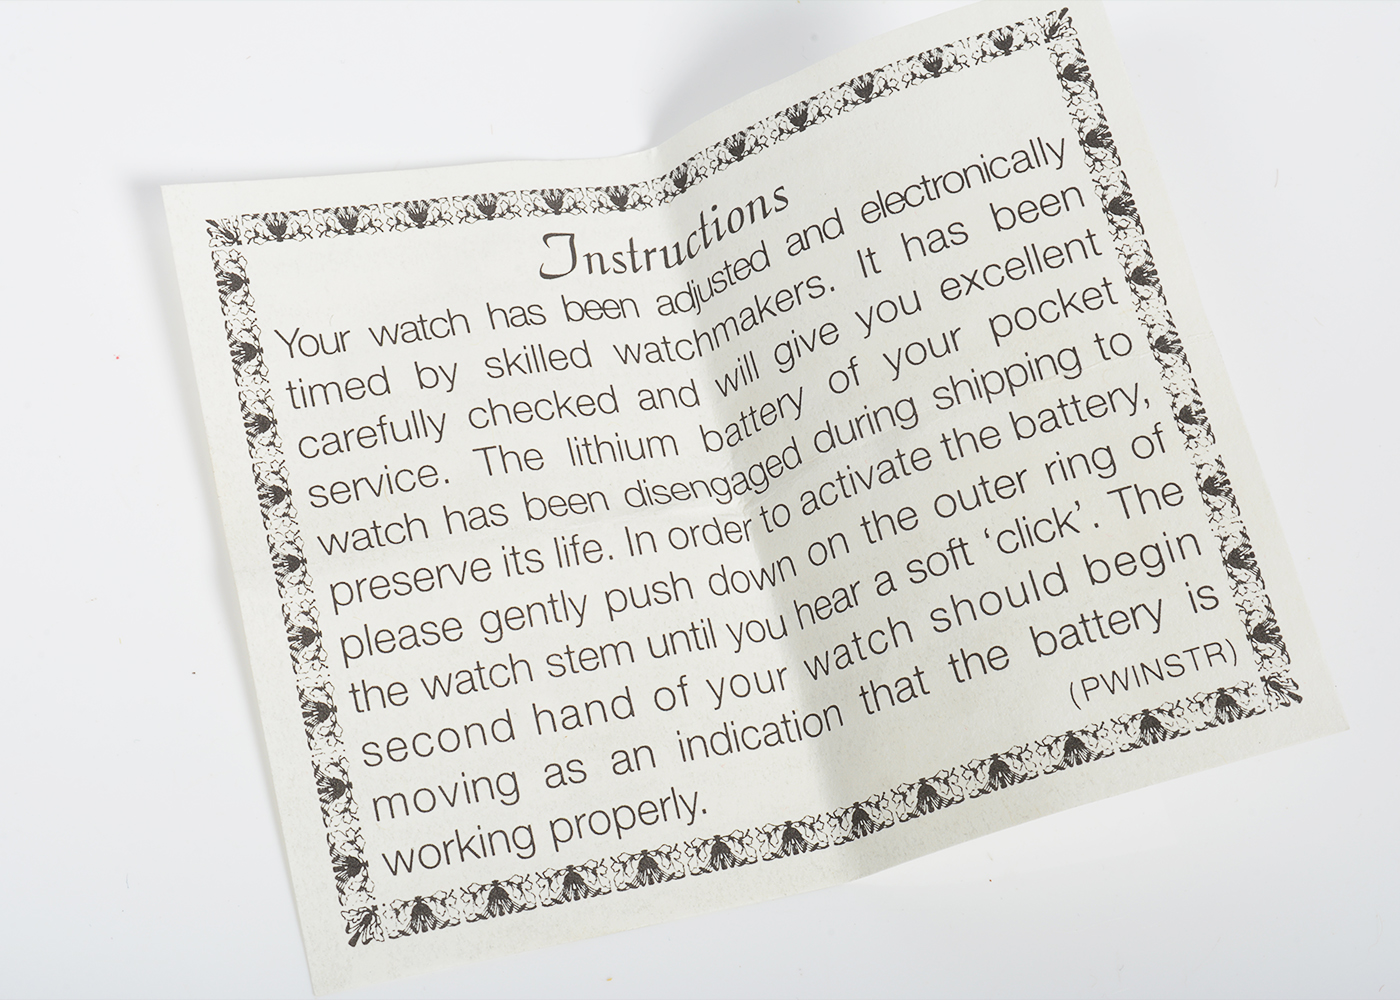 Instructions
Your watch has been adjusted and electronically
timed by skilled watchmakers. It has been
carefully checked and will give you excellent
service. The lithium battery of your pocket
watch has been disengaged during shipping to
preserve its life. In order to activate the battery,
please gently push down on the outer ring of
the watch stem until you hear a soft ‘click’. The
second hand of your watch should begin
moving as an indication that the battery is
working properly.
(PWINSTR)